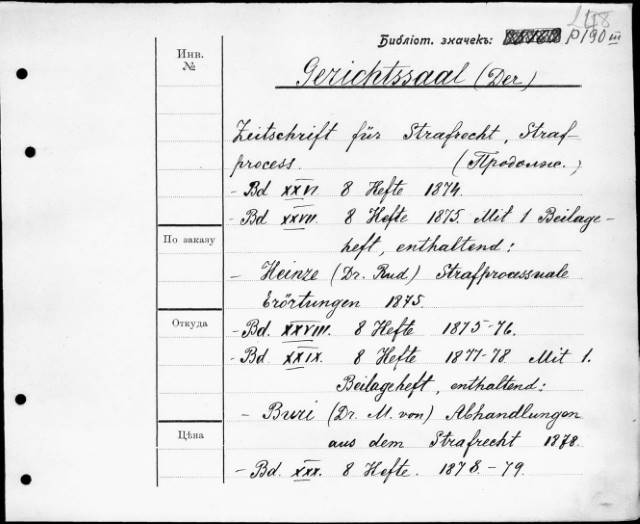 Библіот. значекъ: P190 III
Инв.
№
Gerichtssaal (Der)
Zeitschrift für Strafrecht, Straf-
process. (Продолж.)
- Bd XXVI 8 Hefte 1874.
- Bd XXVII. 8 Hefte 1875. Mit 1 Beilage-
heft, enthaltend:
По заказу
- Heinze (Dr. Rud) Strafprocessuale
Erörtungen 1875.
Откуда
- Bd. XXVIII. 8 Hefte 1875-76.
- Bd. XXIX. 8 Hefte 1877-78 Mit 1.
Beilageheft, enthaltend:
- Buri (Dr. M. von) Abhandlungen
aus dem Strafrecht 1878.
Цѣна
- Bd. XXX. 8 Hefte. 1878.-79.